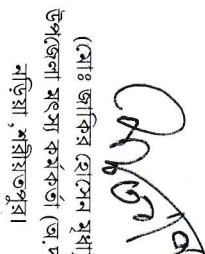 (মোঃ জাকির হোসেন মৃধা
উপজেলা মৎস্য কর্মকর্তা
নড়িয়া, শরীয়তপুর।